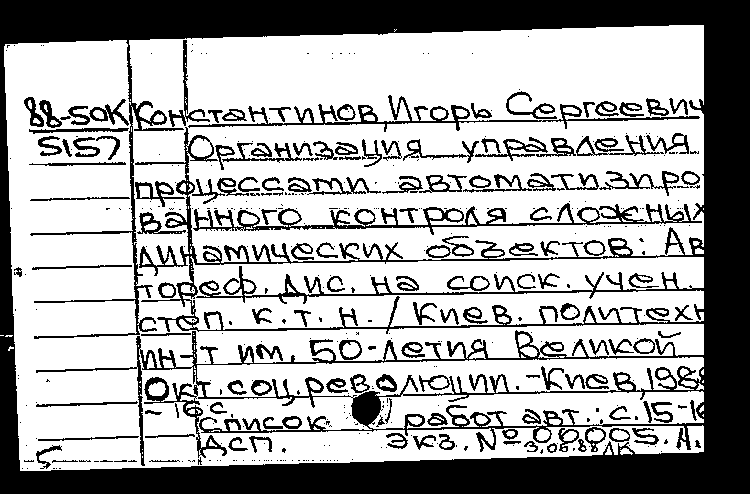 88-50К Константинов, Игорь Сергеевич
5157 Организация управления
процессами автоматизиро-
ванного контроля сложных
динамических объектов: Ав-
тореф. дис. на соиск. учен.
степ. к. т. н. / Киев. политехн
ин-т им. 50-летия Великой
Окт. соц. революции. - Киев, 1988
- 16 с.
Список работ авт.: с. 15-16
ДСП. Экз. № 00005. А.
5 3.06.88